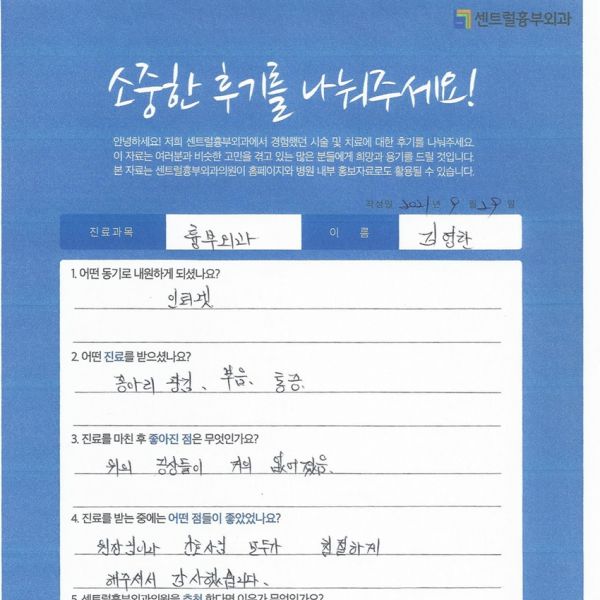 센트럴흉부외과
소중한 후기를 나눠주세요!
안녕하세요! 저희 센트럴흉부외과에서 경험했던 시술 및 치료에 대한 후기를 나눠주세요.
이 자료는 여러분과 비슷한 고민을 겪고 있는 많은 분들에게 희망과 용기를 드릴 것입니다.
본 자료는 센트럴흉부외과의원이 홈페이지와 병원 내부 홍보자료로도 활용될 수 있습니다.
작성일 2021년 9월 29일
진료과목 흉부외과 이 름 김영란
1. 어떤 동기로 내원하게 되셨나요?
인터넷
2. 어떤 진료를 받으셨나요?
종아리 땅김, 부음, 통증.
3. 진료를 마친 후 좋아진 점은 무엇인가요?
위의 증상들이 거의 없어졌음.
4. 진료를 받는 중에는 어떤 점들이 좋았었나요?
원장님이나 간호사님 모두가 친절하게
해주셔서 감사했습니다.
5. 센트럴흉부외과의원을 추천 한다면 이유가 무엇인가요?